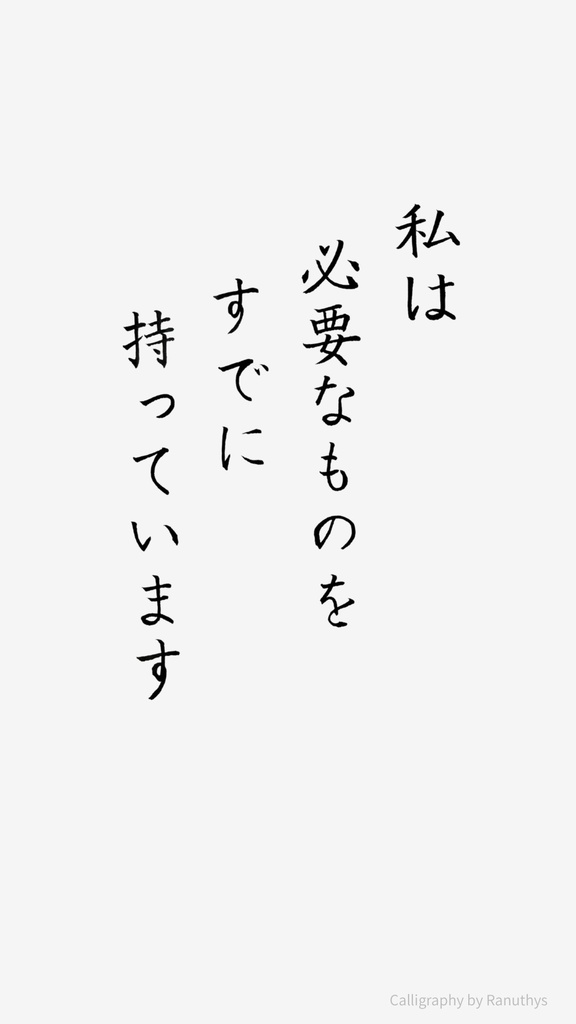 私は
必要なものを
すでに
持っています
Calligraphy by Ranuthys